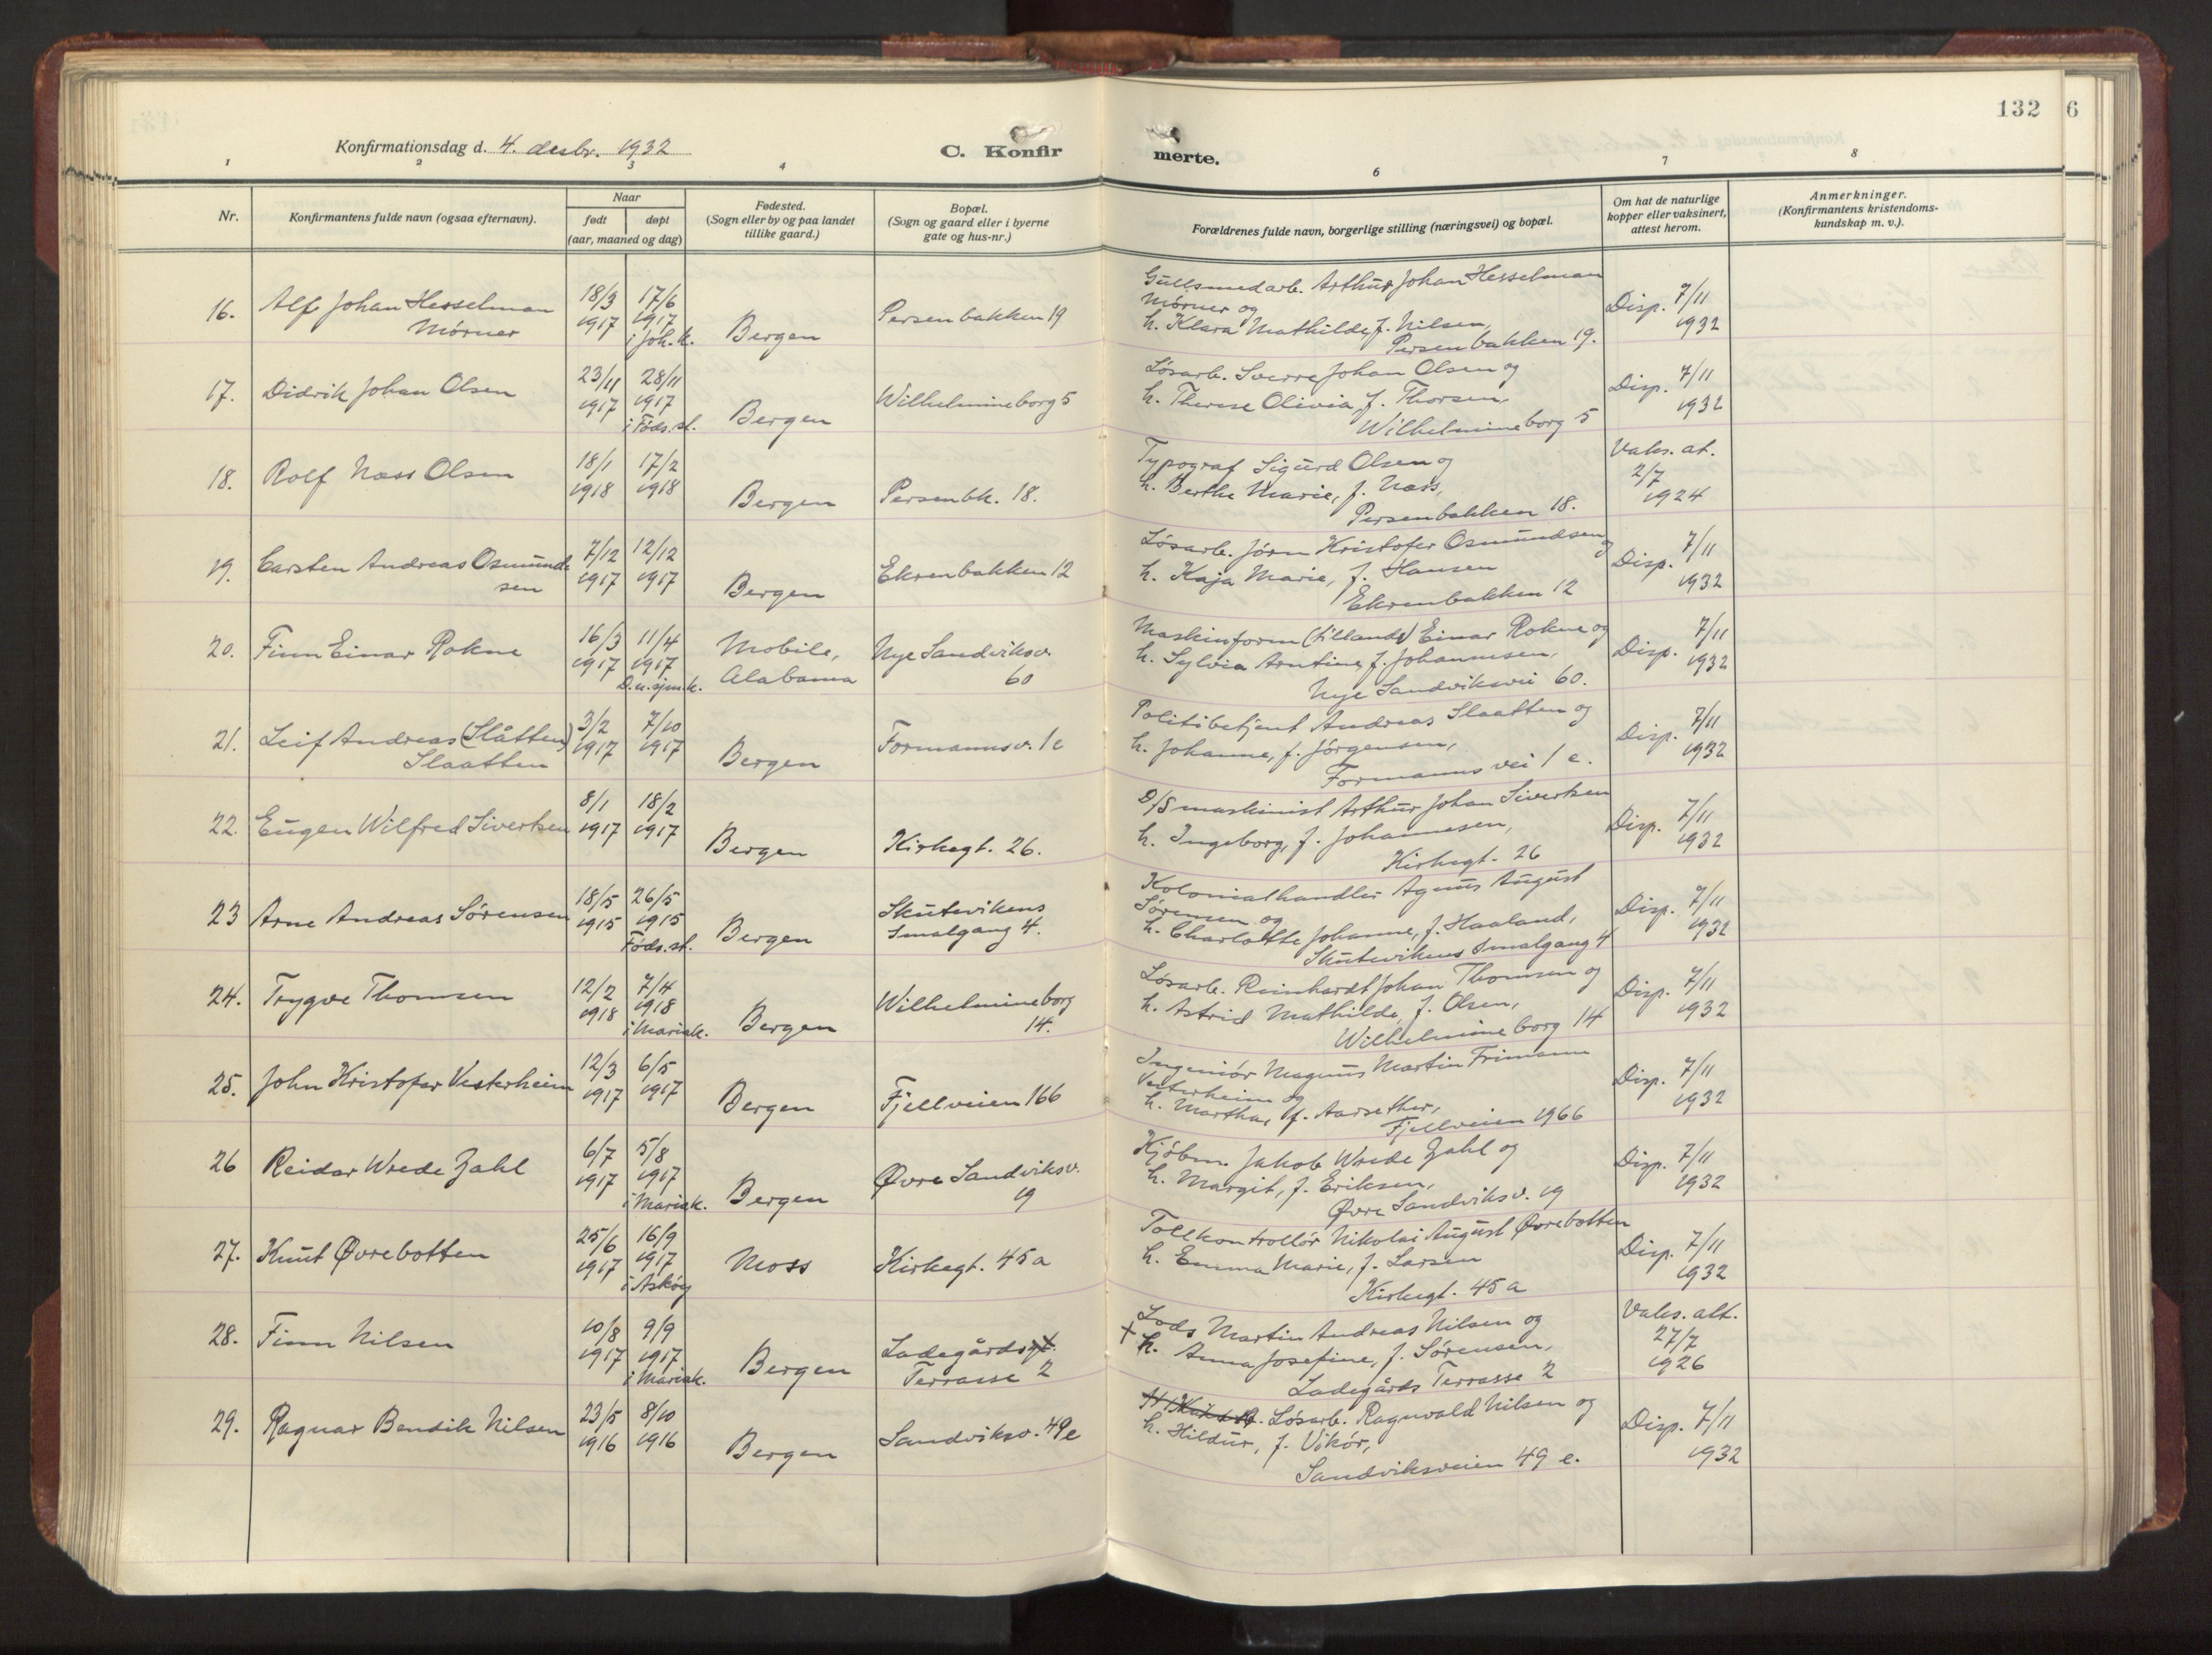 132 6
Konfirmationsdag d. 4. desbr. 1932
C. Konfirmerte.
1 2 3 4 6 7 8
Nr. | Konfirmantens fulde navn (ogsaa efternavn). | Naar født døpt (aar, maaned og dag) | Fødested. (Sogn eller by og paa landet tillike gaard.) | Bopæl. (Sogn og gaard eller i byerne gate og hus-nr.) | Forældrenes fulde navn, borgerlige stilling (næringsvei) og bopæl. | Om hat de naturlige kopper eller vaksinert, attest herom. | Anmerkninger. (Konfirmantens kristendomskundskap m. v.).
16. Alf Johan Hesselman Mørner | 18/3 1917 | 17/6 1917 i Joh. k. | Bergen | Persenbakken 19 | Gullsmedarb. Arthur Johan Hesselman Mørner og h. Klara Mathilde, f. Nilsen, Persenbakken 19. | Disp. 7/11 1932
17. Didrik Johan Olsen | 23/11 1917 | 28/11 1917 i Føds. st. | Bergen | Wilhelmineborg 5 | Løsarb. Sverre Johan Olsen og h. Therese Olivia, f. Thorsen, Wilhelmineborg 5 | Disp. 7/11 1932
18. Rolf Næss Olsen | 18/1 1918 | 17/2 1918 | Bergen | Persenbk. 18. | Typograf Sigurd Olsen og h. Berthe Marie, f. Næss, Persenbakken 18. | Vaks. at. 2/7 1924
19. Carsten Andreas Osmundsen | 7/12 1917 | 12/12 1917 | Bergen | Ekrenbakken 12 | Løsarb. Jørn Kristofer Osmundsen og h. Kaja Marie, f. Hansen Ekrenbakken 12 | Disp. 7/11 1932
20. Finn Einar Rokne | 16/3 1917 | 11/4 1917 D. n. sjm. k. | Mobile, Alabama | Nye Sandviksv. 60 | Maskinform (tillands) Einar Rokne og h. Sylvia Arntine, f. Johannesen, Nye Sandviksvei 60. | Disp. 7/11 1932
21. Leif Andreas (Slåtten) Slaatten | 3/2 1917 | 7/10 1917 | Bergen | Formannsv. 1 e | Politibetjent Andreas Slaatten og h. Johanne, f. Jørgensen, Formanns vei 1 e. | Disp. 7/11 1932
22. Eugen Wilfred Sivertsen | 8/1 1917 | 18/2 1917 | Bergen | Kirkegt. 26. | D/S maskinist Arthur Johan Sivertsen h. Ingeborg, f. Johannesen, Kirkegt. 26 | Disp. 7/11 1932
23 Arne Andreas Sørensen | 18/5 1915 | 26/5 1915 Føds. st. | Bergen | Skutevikens Smalgang 4. | Kolonialhandler Agnus August Sørensen og h. Charlotte Johanne, f. Haaland, Skutevikens Smalgang 4 | Disp. 7/11 1932
24. Trygve Thomsen | 12/2 1918 | 7/4 1918 i Mariak. | Bergen | Wilhelmineborg 14. | Løsarb. Reinhardt Johan Thomsen og h. Astrid Mathilde, f. Olsen, Wilhelmineborg 14 | Disp. 7/11 1932
25. John Kristofer Vesterheim | 12/3 1917 | 6/5 1917 | Bergen | Fjellveien 166 | Ingeniør Magnus Martin Frimann Vesterheim og h. Martha, f. Aarsether, Fjellveien 1966 | Disp. 7/11 1932
26 Reidar Wrede Zahl | 6/7 1917 | 5/8 1917 i Mariak. | Bergen | Øvre Sandviksv. 19 | Kjøbm. Jakob Wrede Zahl og h. Margit, f. Eriksen, Øvre Sandviksv. 19 | Disp. 7/11 1932
27. Knut Øvrebotten | 25/6 1917 | 16/9 1917 i Askøy | Moss | Kirkegt. 45 a | Tollkontrollør Nikolai August Øvrebotten h. Emma Marie, f. Larsen Kirkegt. 45 a | Disp. 7/11 1932
28. Finn Nilsen | 10/8 1917 | 9/9 1917 i Mariak. | Bergen | Ladegårds Terrasse 2 | Lods Martin Andreas Nilsen og + h. Anna Josefine, f. Sørensen, Ladegårds Terrasse 2 | Vaks. att. 27/7 1926
29. Ragnar Bendik Nilsen | 23/5 1916 | 8/10 1916 | Bergen | Sandviksv. 49 e | Løsarb. Ragnvald Nilsen og h. Hildur, f. Vikør, Sandviksveien 49 e. | Disp. 7/11 1932